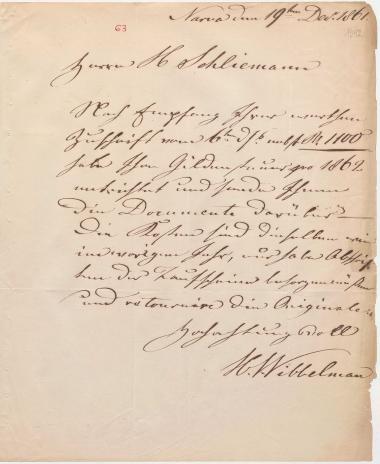 Narva den 19ten Decb. 1861.
63
Herrn H Schliemann
Nach Empfang Ihrer werthen
Zuschrift vom 6ten ds. nebst Ro 1100
habe Ihre Gildensteuer pro 1862
entrichtet und sende Ihnen
die Documente darüber
Die Kosten sind dieselben wie
im vorigen Jahr, nur habe Abschrif
ten der Taufscheine besorgen müssen
und retournire die Originale
Hochachtungsvoll
H. Wibbelman